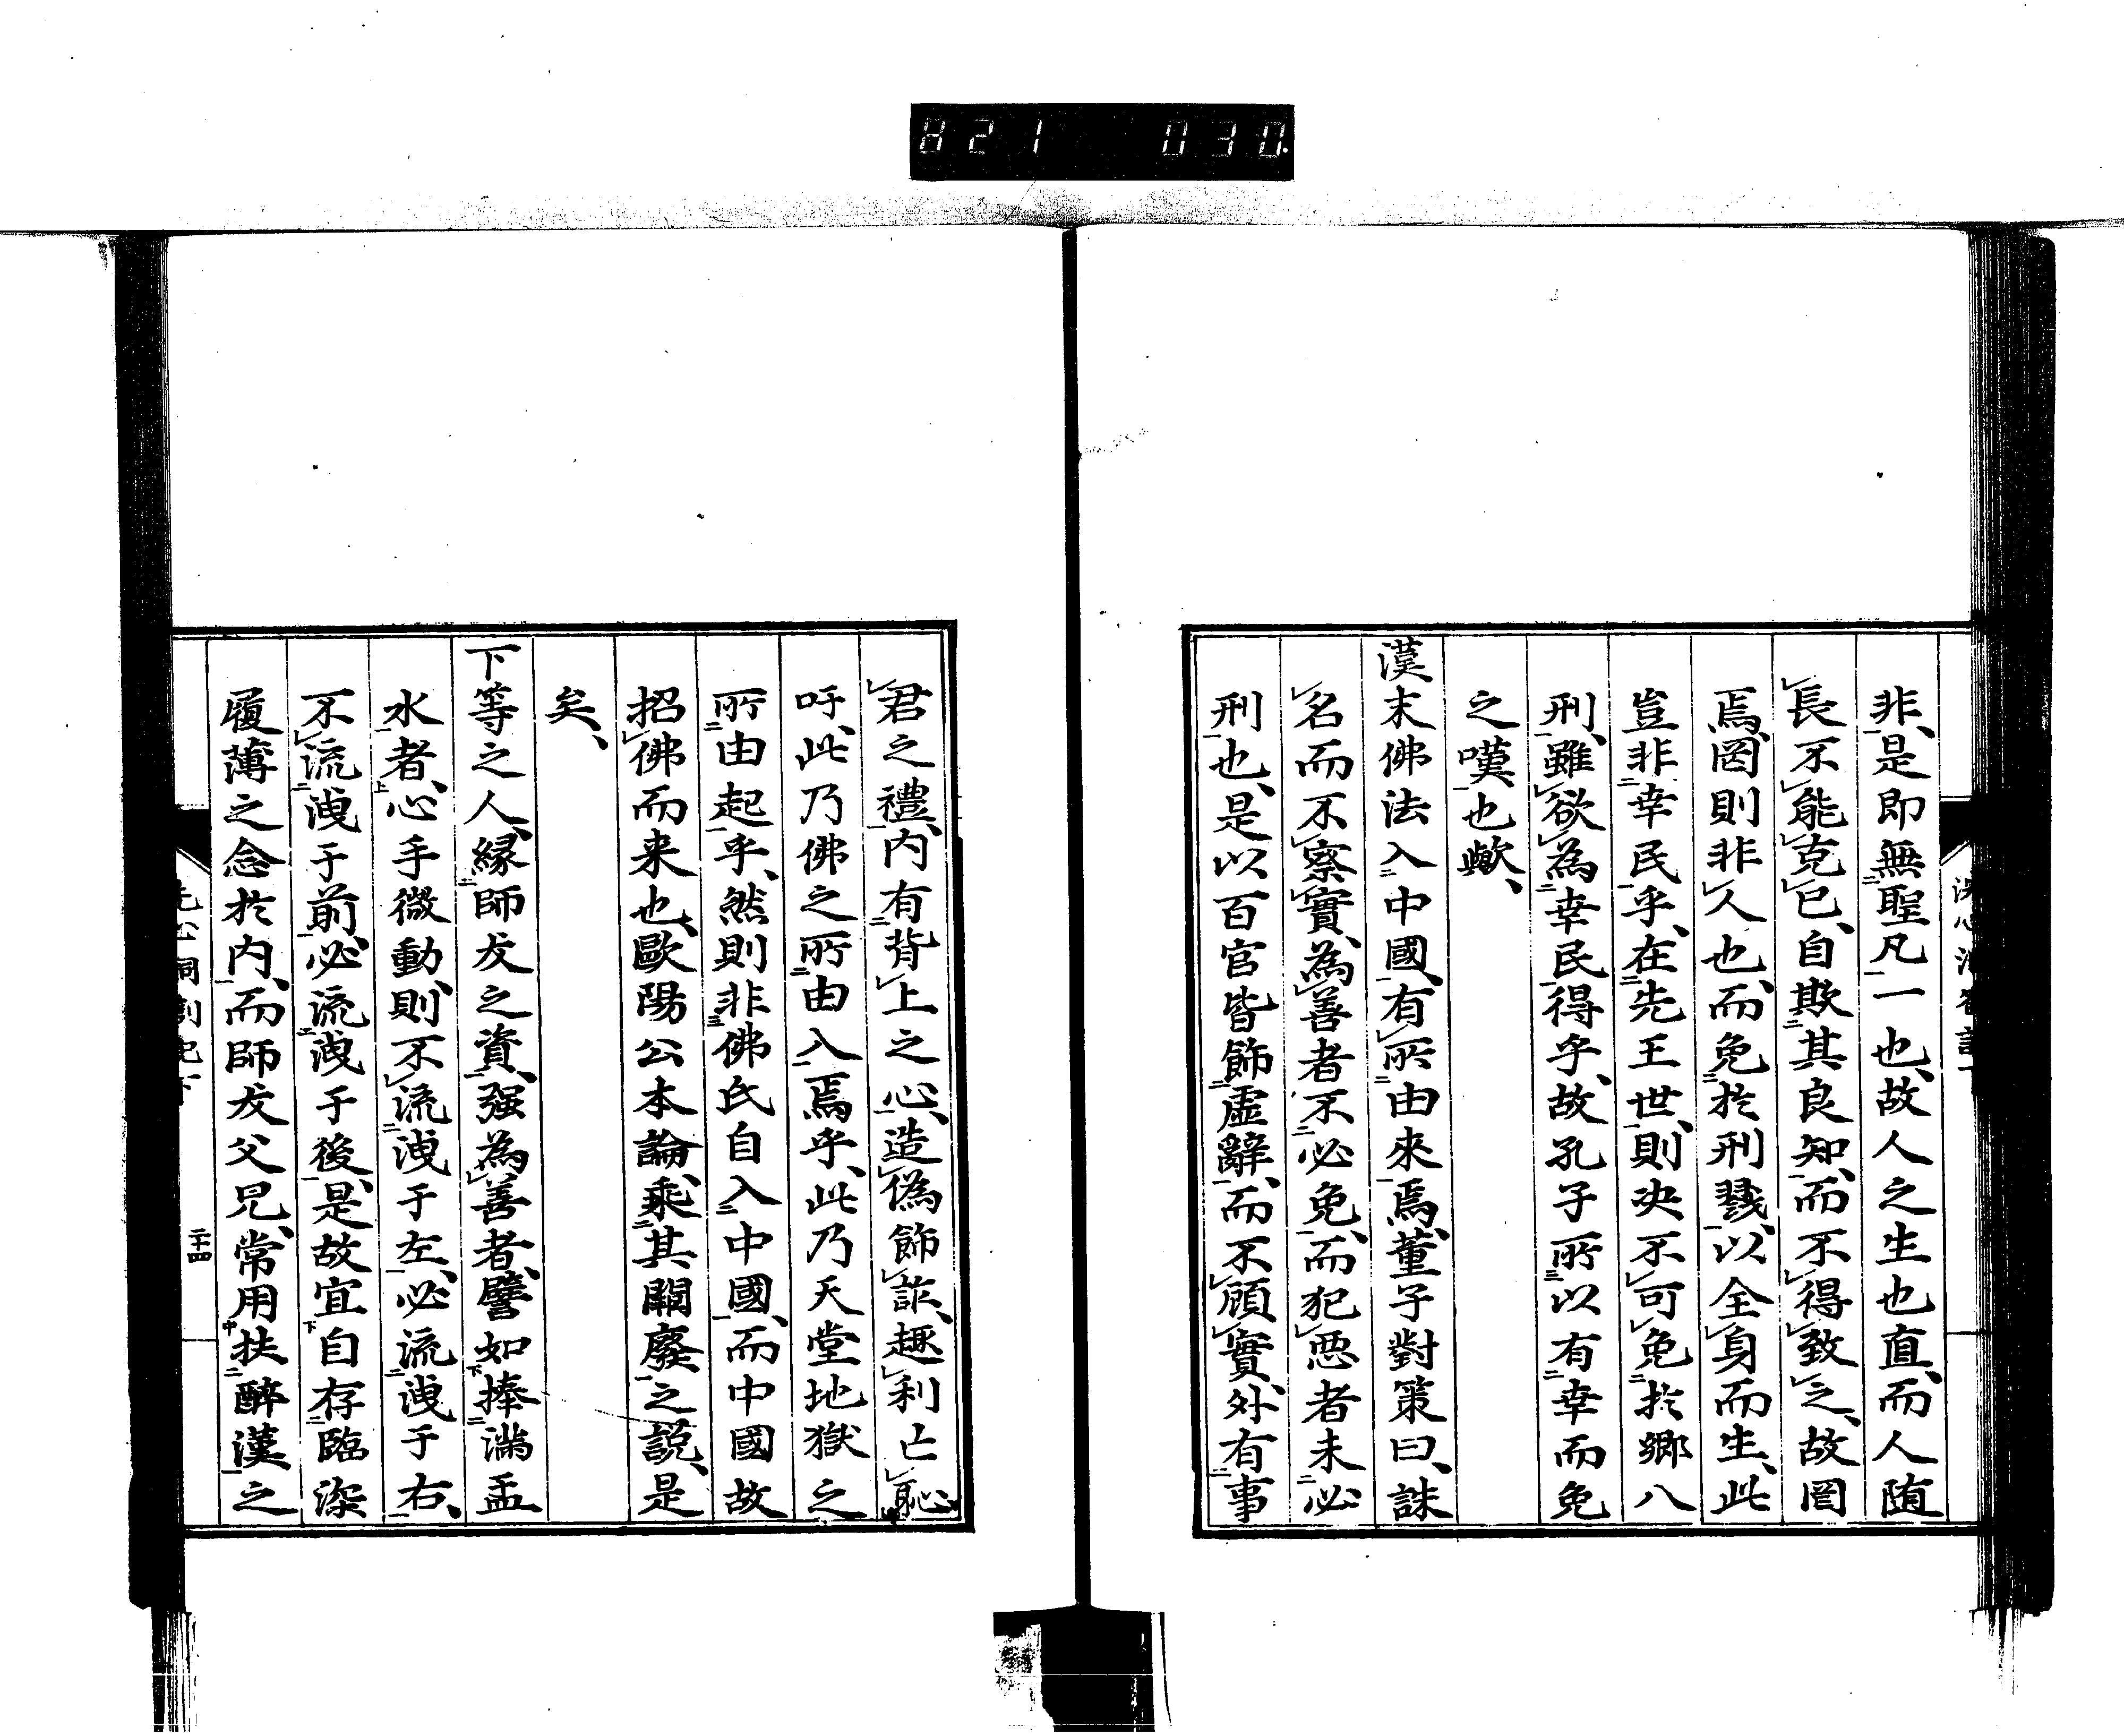 821 030
非、是即無聖凡一也、故人之生也直、而人随
長不能克已、自欺其良知、而不得致之、故罔
焉、罔則非人也、而免於刑戮、以全身而生、此
豈非幸民乎、在先王世、則決不可免於郷八
刑、雖欲為幸民得乎、故孔子所以有幸而免
之嘆也歟、
漢末佛法入中國、有所由來焉、董子對策曰、誅
名而不察實、為善者不必免、而犯悪者未必
刑也、是以百官皆飾虚辭、而不顧實、外有事
君之禮、内有背上之心、造偽飾詐、趣利亡恥
吁、此乃佛之所由入焉乎、此乃天堂地獄之
所由起乎、然則非佛氏自入中國、而中國故
招佛而来也、歐陽公本論、乘其闕廢之説、是
矣、
下等之人、縁師友之資、强為善者、譬如捧滿盂
水者、心手微動、則不流洩于左、必流洩于右、
不流洩于前、必流洩于後、是故宜自存臨深
履薄之念於内、而師友父兄、常用扶醉漢之
二十四